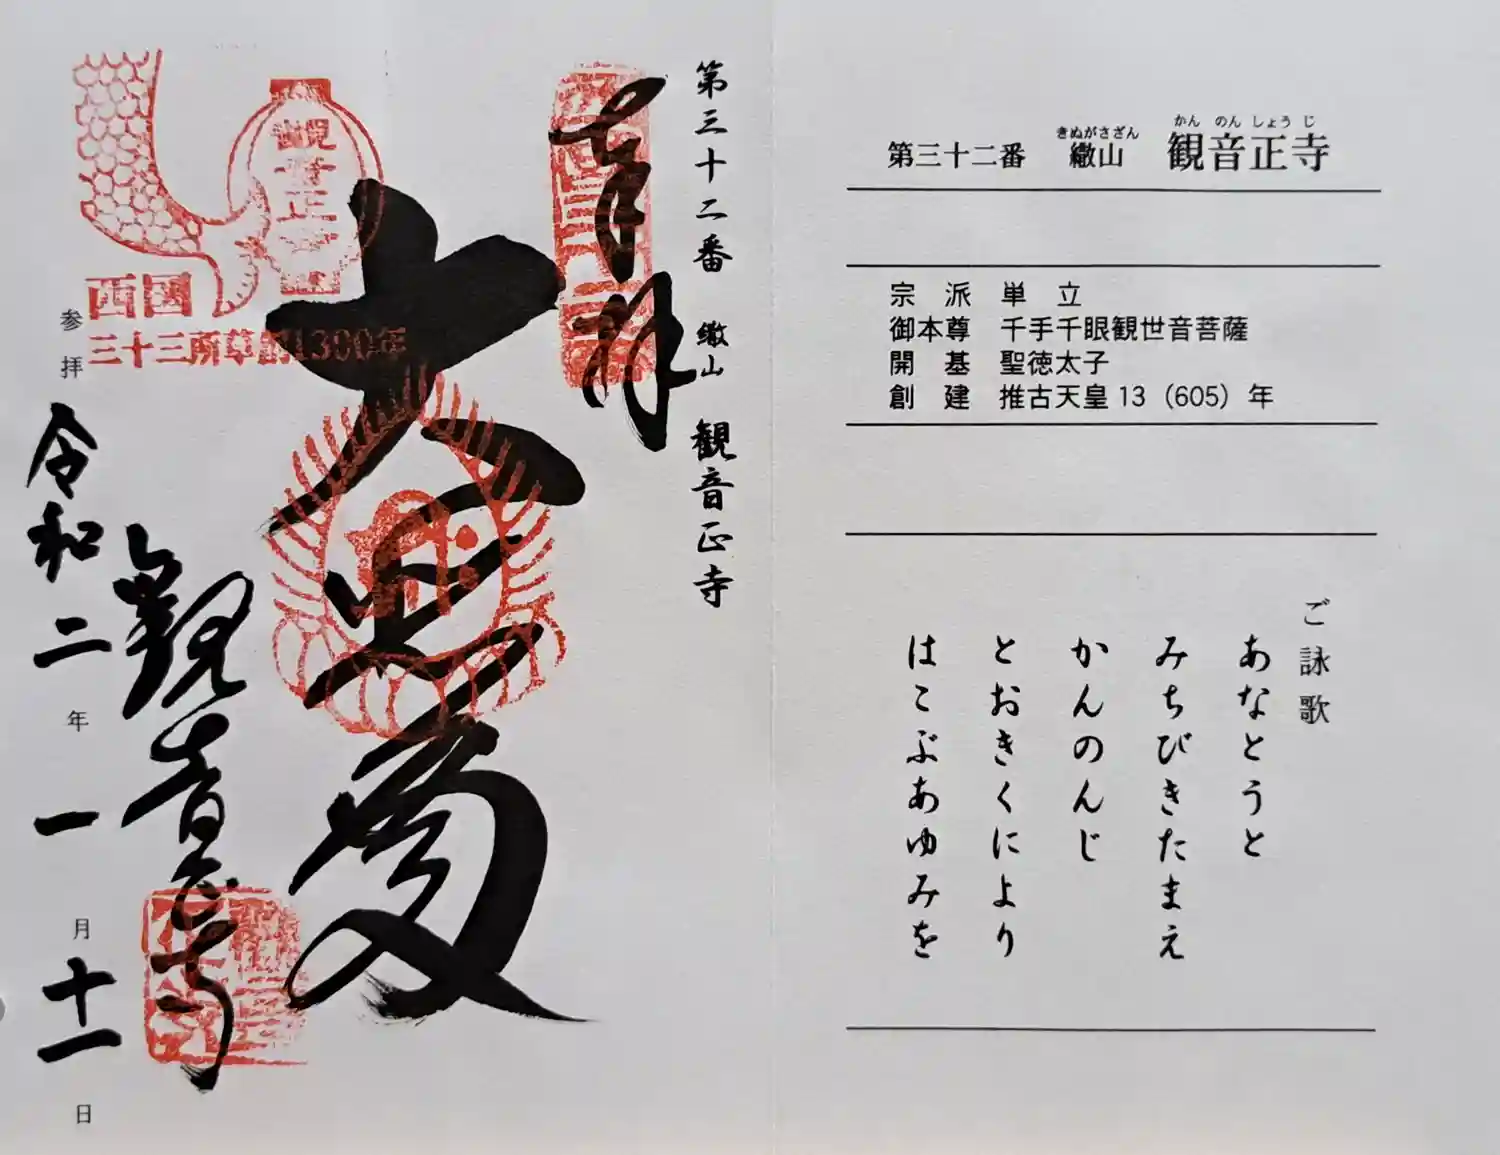 きぬがさざん かんのんしょうじ
第三十二番 繖山 観音正寺
宗派 単立
御本尊 千手千眼観世音菩薩
開基 聖徳太子
創建 推古天皇13（605）年
ご詠歌
あなとうと
みちびきたまえ
かんのんじ
とおきくにより
はこぶあゆみを
第三十二番 繖山 観音正寺
奉拝
大悲閣
觀音正寺
西國
三十三所草創1300年
觀音正寺
参拝 令和二年一月十一日